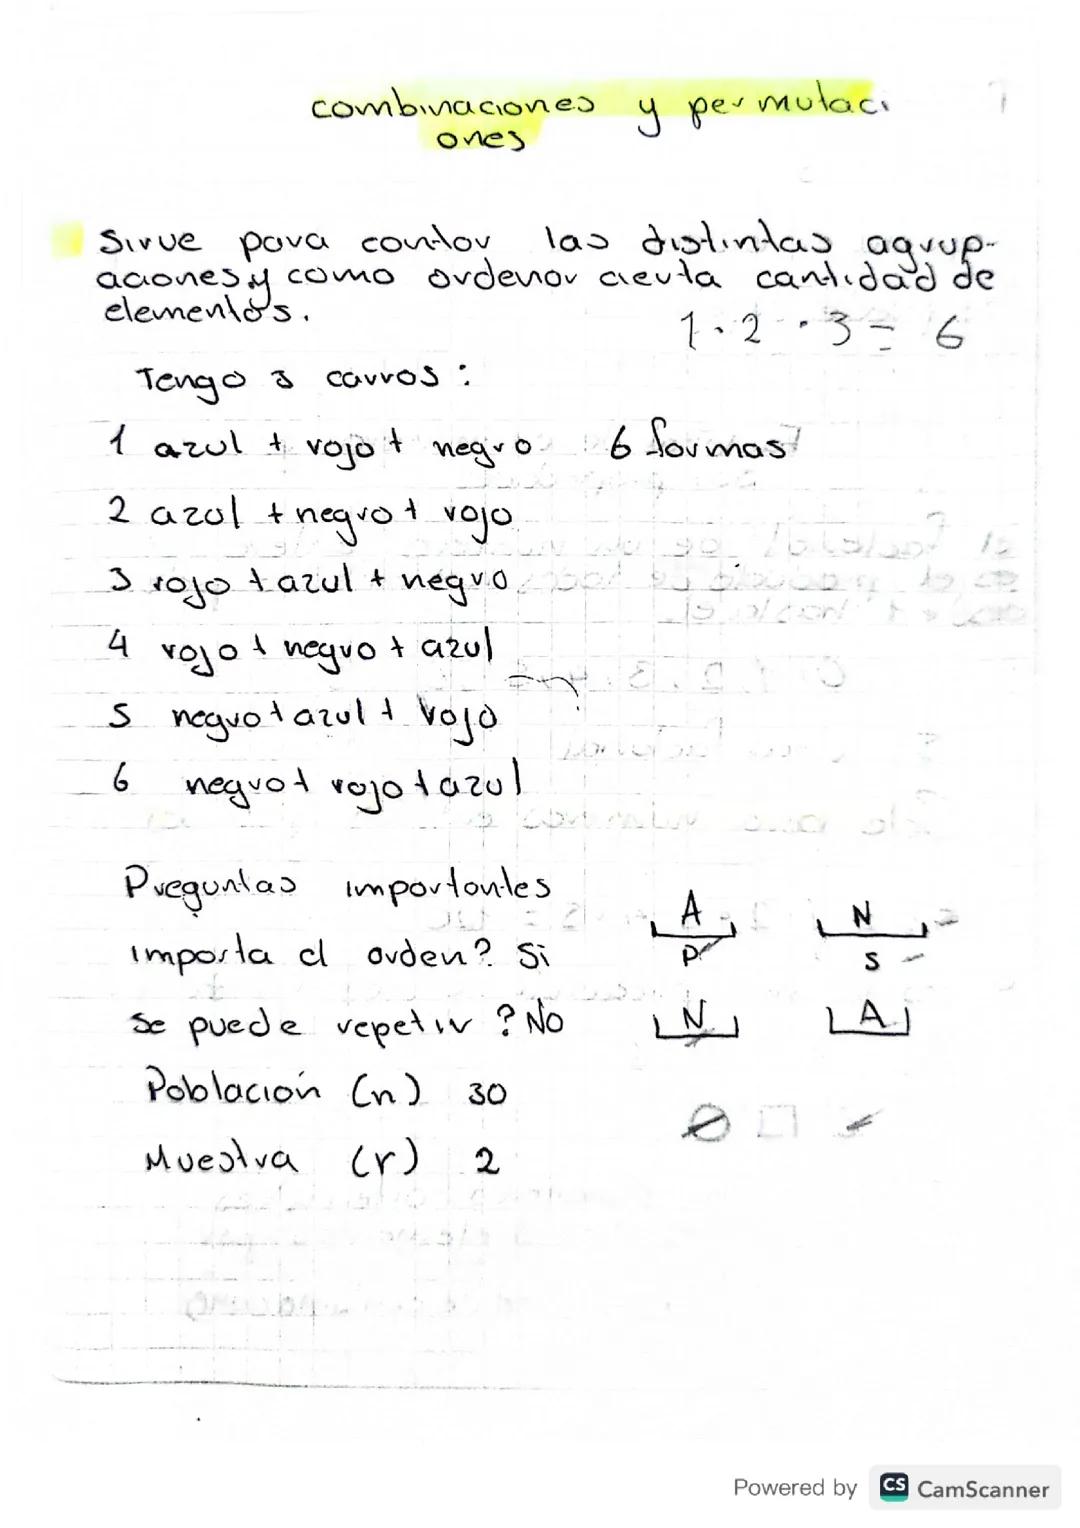 combinaciones y permutaci
ones
Sirve para contar las distintas agrup-
aciones y como ordenar cierta cantidad de
elementos.
1 · 2 · 3 = 6
Tengo 3 carros :
1 azul + rojo + negro 6 formas
2 azul + negro + rojo
3 rojo + azul + negro
4 rojo + negro + azul
5 negro + azul + rojo
6 negro + rojo + azul
Preguntas importantes
importa el orden? Si
se puede repetir ? NO
Población (n) 30
Muestra (r) 2
A N
P S
N A
Powered by CS CamScanner